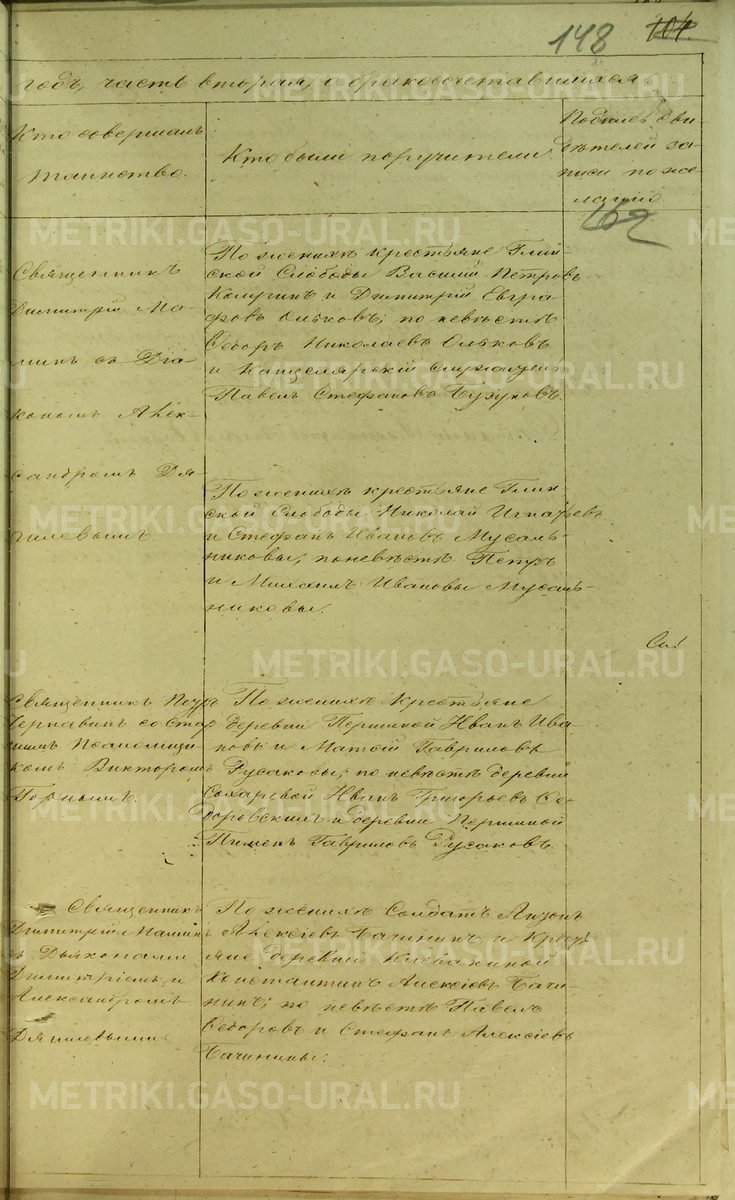 148 104
годъ, часть вторая, о бракосочетавшихся.
Кто совершалъ
таинство.
Кто были поручители.
Подпись сви-
дѣтелей за-
писи по же-
ланію
Священникъ
Димитрій Ма-
минъ съ Діа-
кономъ Алек-
сандромъ Дя-
гилевымъ.
По женихѣ крестьяне Глин-
ской Слободы Василій Петровъ
и Димитрій Евгра-
фовъ Ольковъ; по невѣстѣ
Ѳедоръ Николаевъ Ольковъ
и Канцелярскій Служитель
Павелъ Стефановъ
По женихѣ крестьяне Глин-
ской Слободы Николай Игнатьевъ
и Стефанъ Ивановъ Мусаль-
никовы; по невѣстѣ Петръ
и Михаилъ Ивановы Мусаль-
никовы.
Священникъ Петръ
Чернавинъ со Стар-
шимъ Псаломщи-
комъ Викторомъ
Горнымъ.
По женихѣ крестьяне
деревни Першиной Иванъ Ива-
новъ и Матѳій Гавриловъ
Русаковы; по невѣстѣ деревни
Сохаревой Иванъ Григорьевъ Ѳе-
доровскихъ и деревни Першиной
Пименъ Гавриловъ Русаковъ.
Священникъ
Димитрій Маминъ
съ Діаконами
Димитріемъ и
Александромъ
Дягилевыми.
По женихѣ Солдатъ
Алексіевъ Бачининъ и Кресть-
яне деревни Клевакиной
Константинъ Алексіевъ Бачи-
нинъ; по невѣстѣ Павелъ
Ѳедоровъ и Стефанъ Алексіевъ
Бачинины.
METRIKI.GASO-URAL.RU